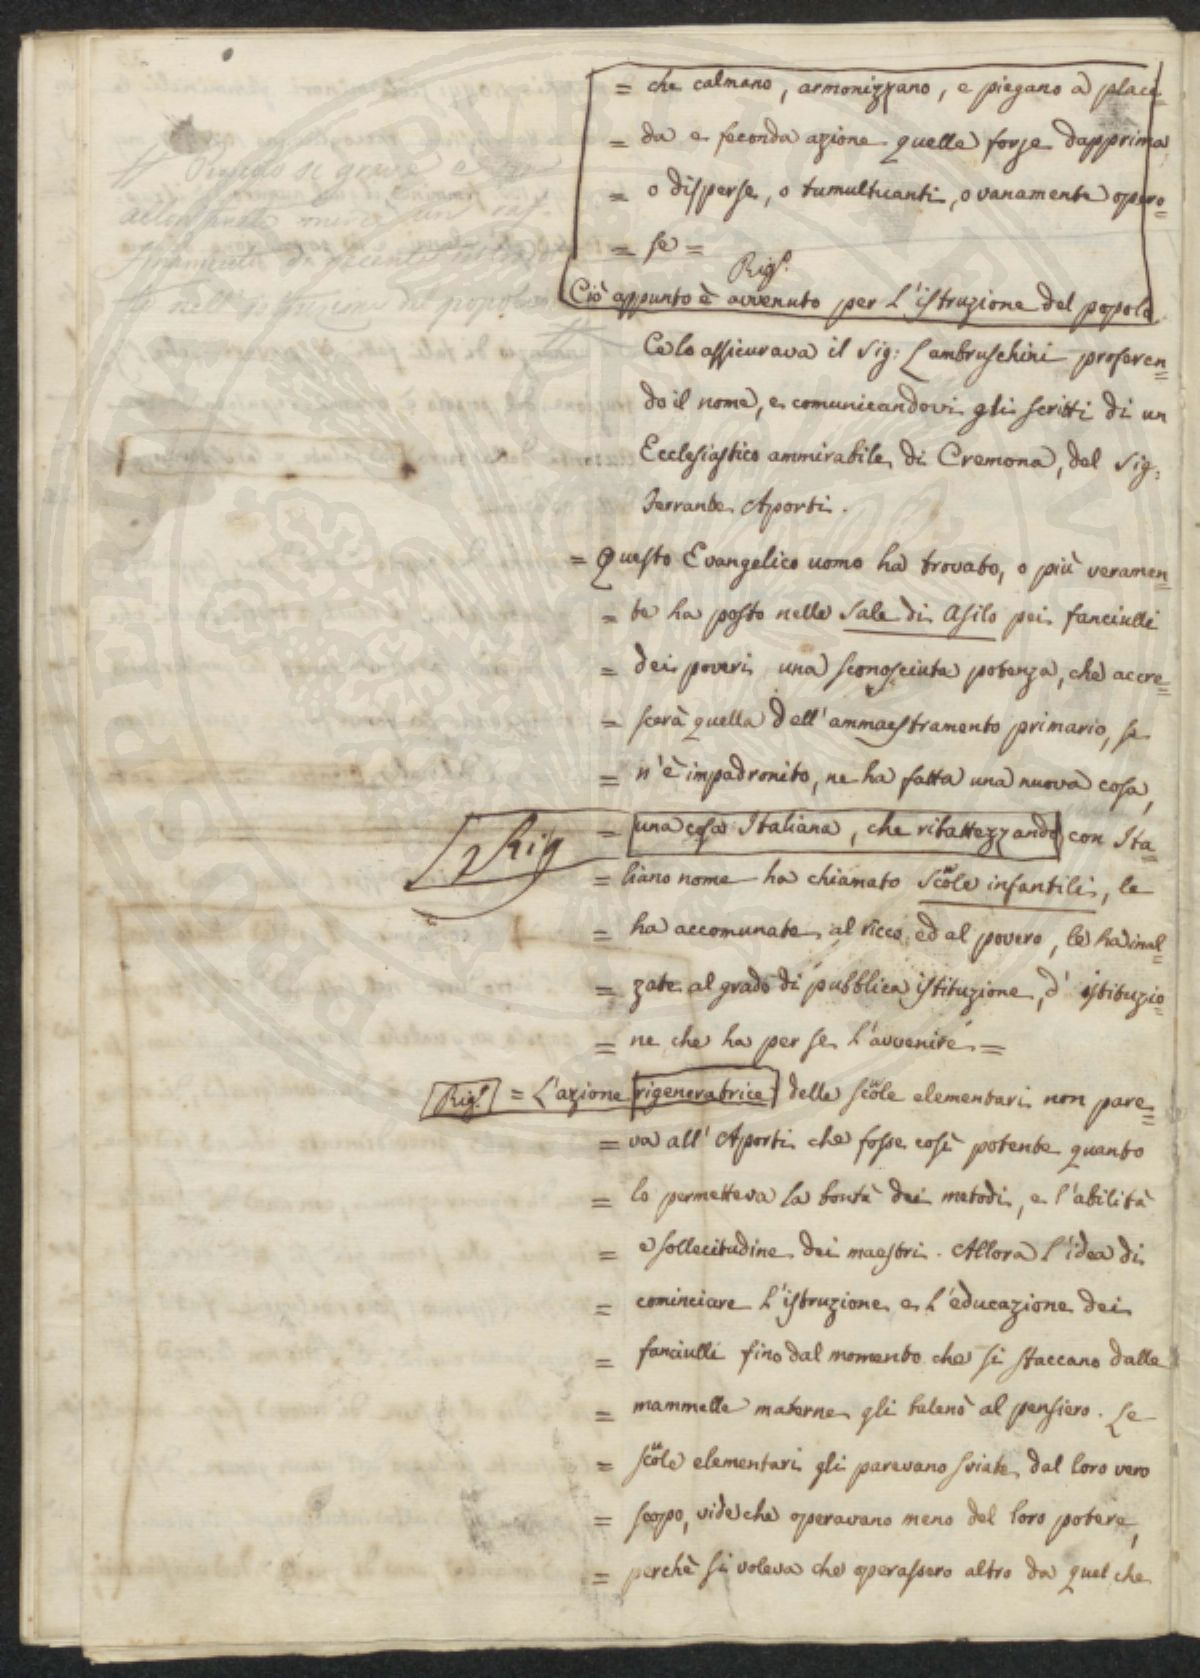 = che calmano, armonizzano, e piegano a placi-
= da e feconda azione quelle forze dapprima
= o disperse, o tumultuanti, o vanamente opero=
= se =
Rigo.
Ciò appunto è avvenuto per l'istruzione del popolo
Ce lo assicurava il Sig: Lambruschini proferen=
do il nome, e comunicandovi gli scritti di un
Ecclesiastico ammirabile di Cremona, del Sig:
Ferrante Aporti.
= Questo Evangelico uomo ha trovato, o più veramen=
= te ha posto nelle Sale di Asilo pei fanciulli
= dei poveri una sconosciuta potenza, che accre=
= scerà quella dell'ammaestramento primario, se
= n'è impadronito, ne ha fatta una nuova cosa,
Rig
= una cosa Italiana, che ribattezzando con Ita=
= liano nome ha chiamato Scuole infantili, le
= ha accomunate al ricco, ed al povero, le ha inal=
= zate al grado di pubblica istituzione, d'istituzio=
= ne che ha per se l'avvenire. =
Rigo. = L'azione rigeneratrice delle scuole elementari non pare=
= va all'Aporti che fosse così potente quanto
= lo permetteva la bontà dei metodi, e l'abilità
= e sollecitudine dei maestri. Allora l'idea di
= cominciare l'istruzione e l'educazione dei
= fanciulli fino dal momento che si staccano dalle
= mammelle materne gli balenò al pensiero. Le
= scuole elementari gli parevano sviate dal loro vero
= scopo, vide che operavano meno del loro potere,
= perchè si voleva che operassero altro da quel che